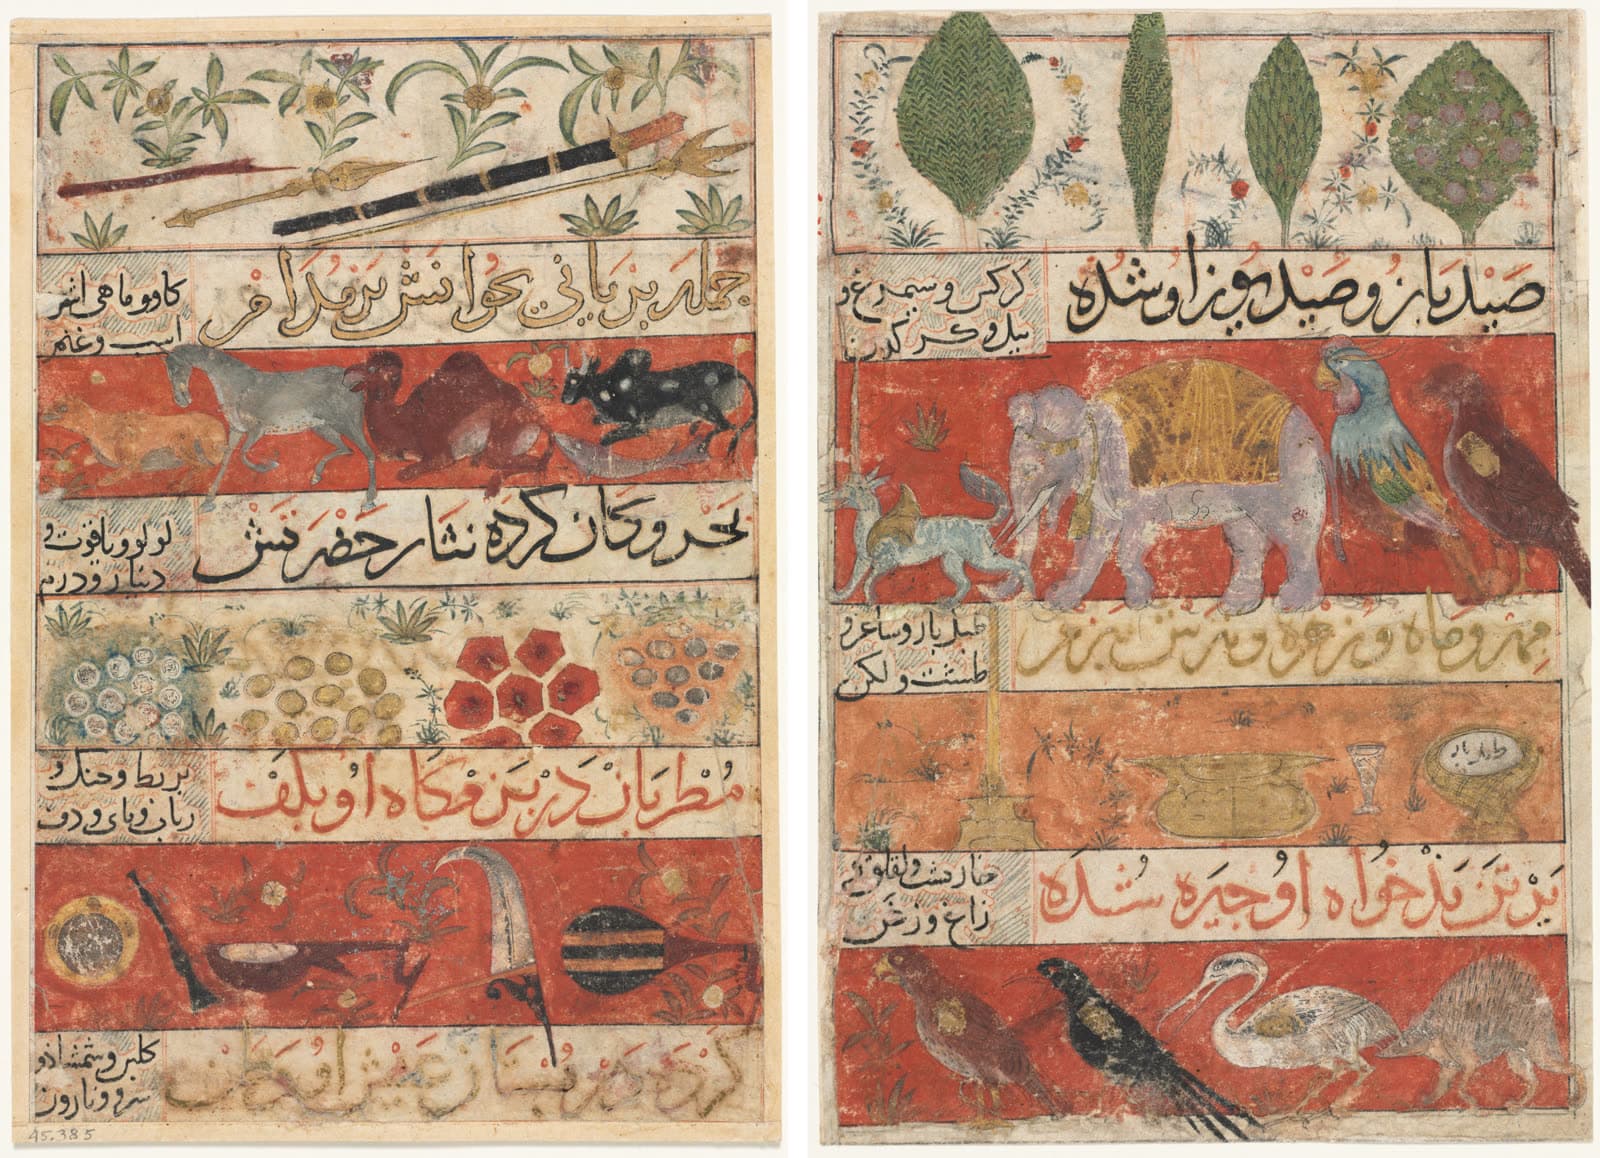 جمله بریانی بخوانش
گاو و ماهی اشتر
اسب و غنم
بحر و کان کرده نثار حضرتش
لولو و یاقوت و
دینار و درم
مطربان در بزمگاه او بکف
بربط و چنگ و
رباب و نای و دف
کرده در بستان عیش او وطن
گلبن و شمشاد و
سرو و نارون
45.385
صید باز و صید یوز او شده
کرکس و سیمرغ و
پیل و کرگدن
مهر و ماه و زهره و
طبل باز و ساغر و
طشت و لگن
طبل باز
بر تن بدخواه او چیره شده
خارپشت و لقلق و
زاغ و زغن